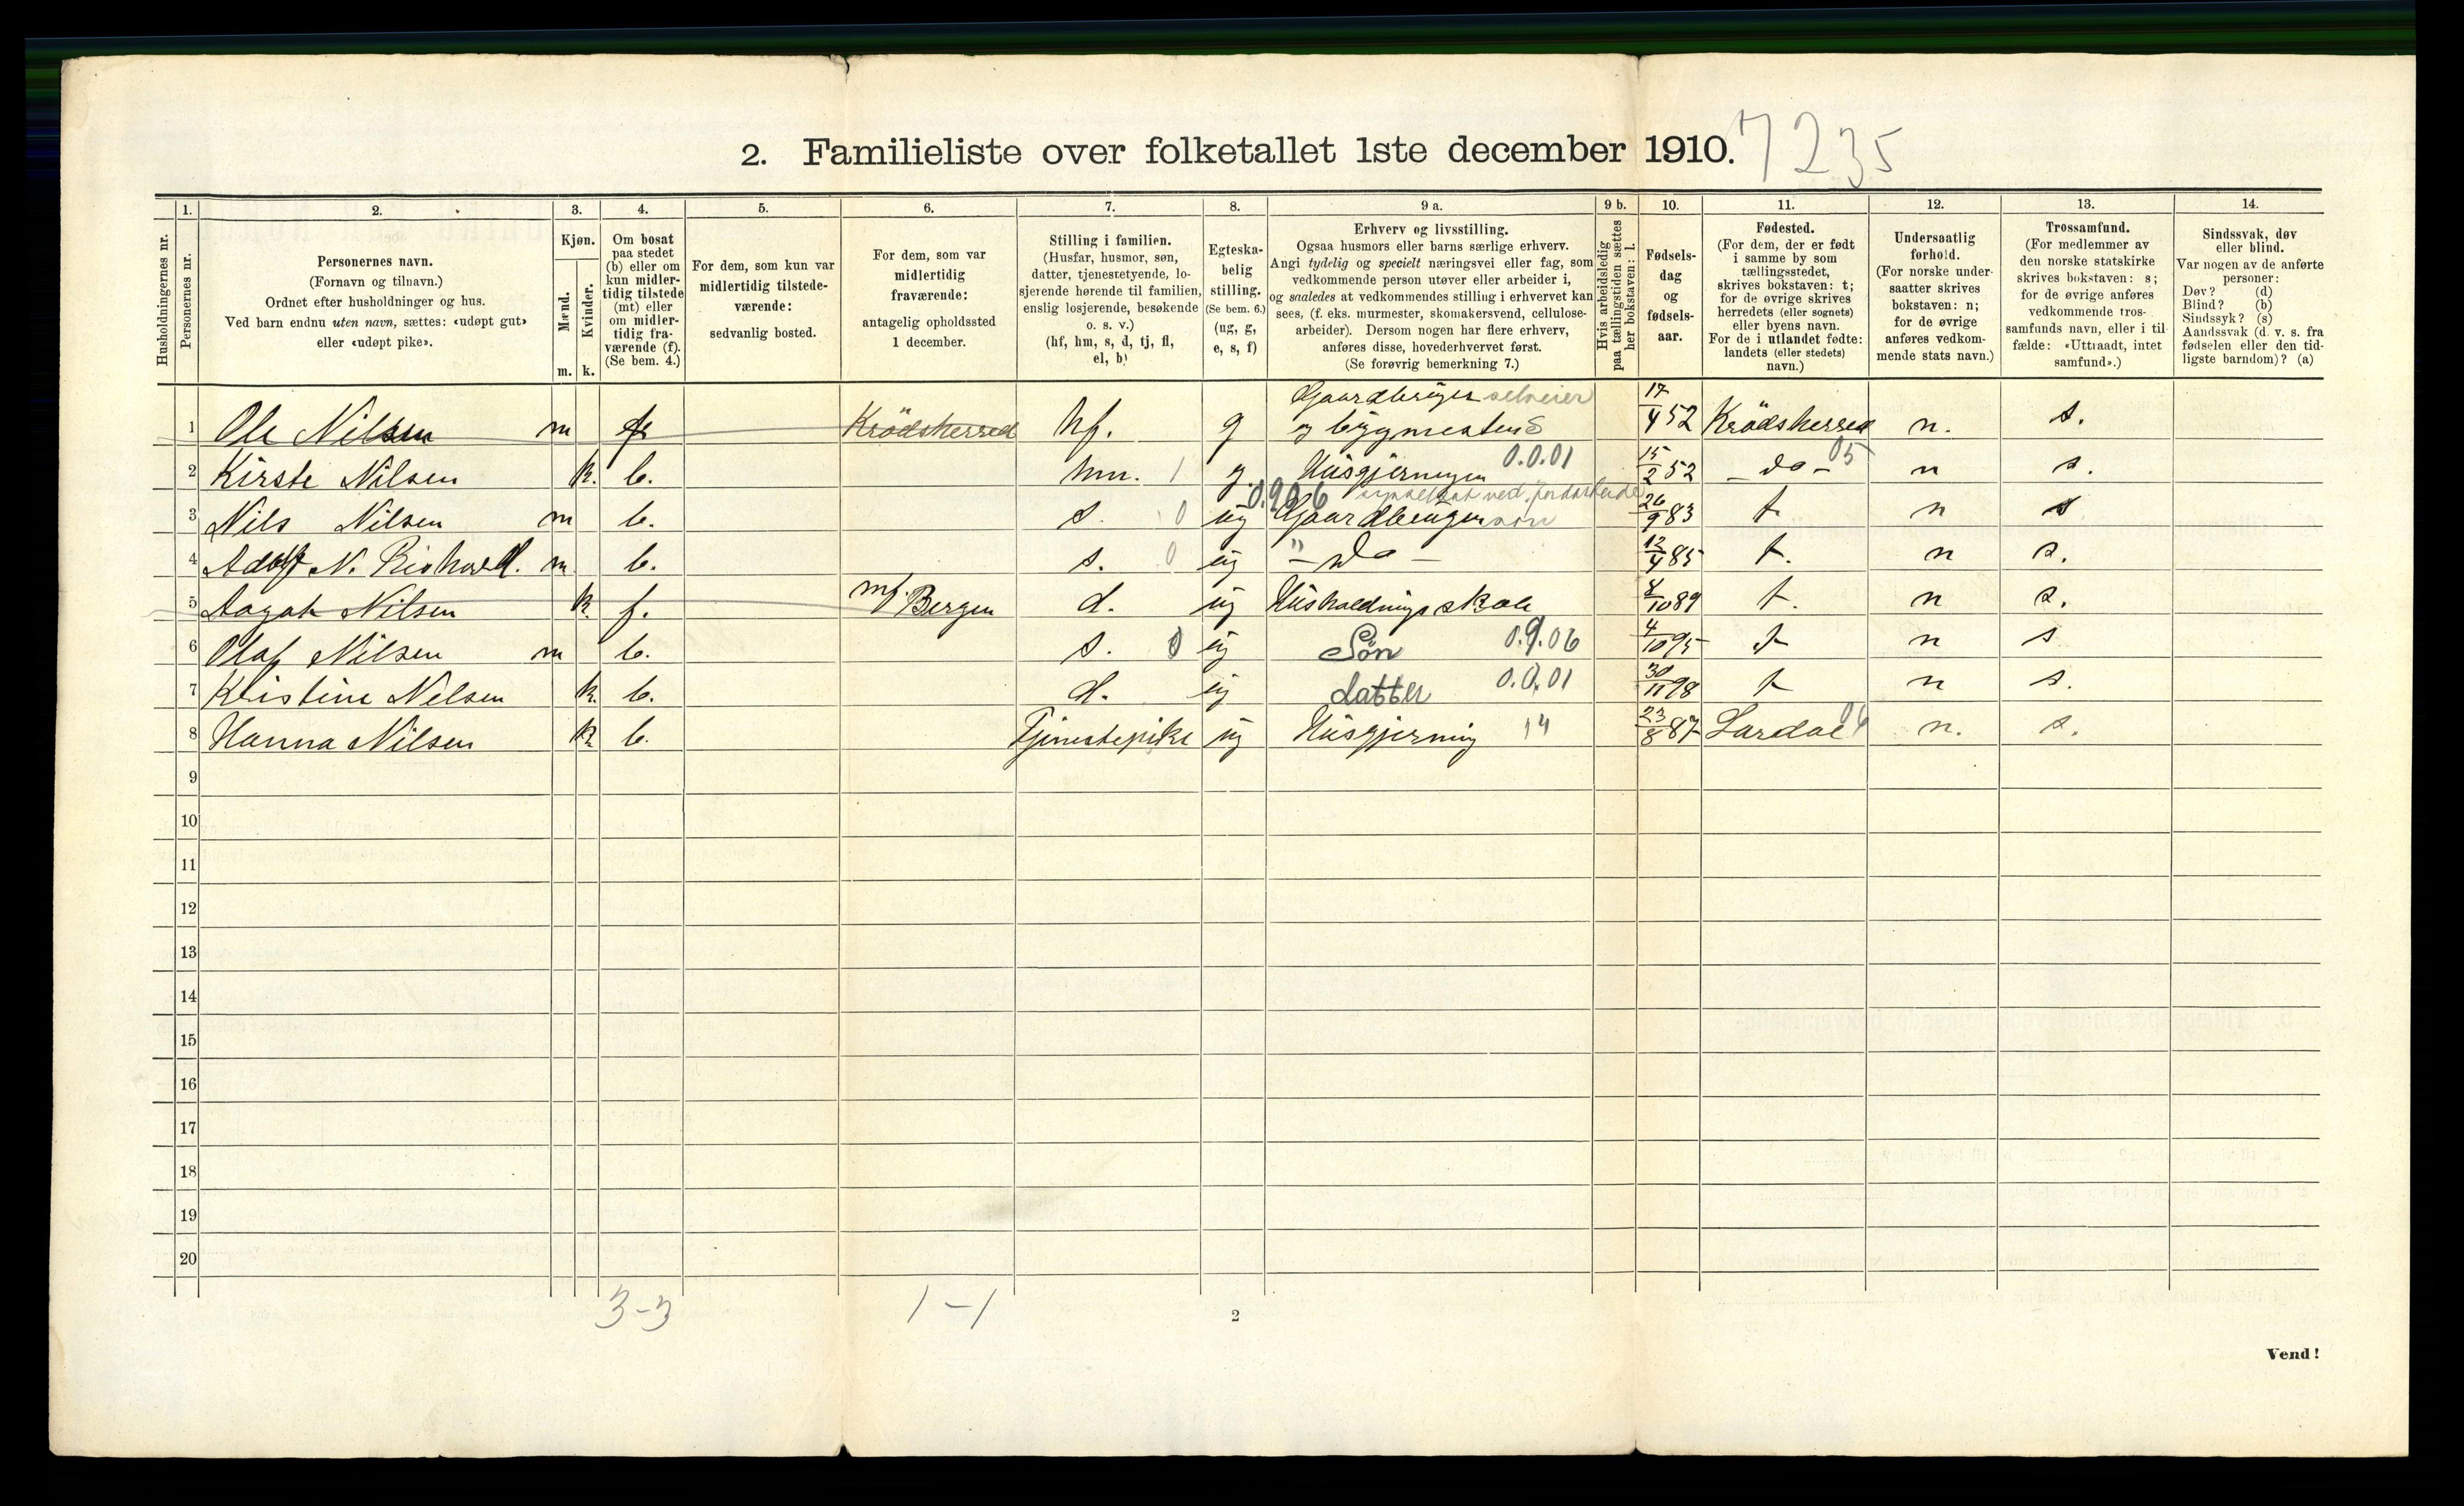 2. Familieliste over folketallet 1ste december 1910. 7235
Husholdningernes nr.
1.
Personernes nr.
2.
Personernes navn.
(Fornavn og tilnavn.)
Ordnet efter husholdninger og hus.
Ved barn endnu uten navn, sættes: «udøpt gut»
eller «udøpt pike».
3.
Kjøn.
Mænd.
Kvinder.
m. k.
4.
Om bosat
paa stedet
(b) eller om
kun midler-
tidig tilstede
(mt) eller
om midler-
tidig fra-
værende (f).
(Se bem. 4.)
5.
For dem, som kun var
midlertidig tilstede-
værende:
sedvanlig bosted.
6.
For dem, som var
midlertidig
fraværende:
antagelig opholdssted
1 december.
7.
Stilling i familien.
(Husfar, husmor, søn,
datter, tjenestetyende, lo-
sjerende hørende til familien,
enslig losjerende, besøkende
o. s. v.)
(hf, hm, s, d, tj, fl,
el, b)
8.
Egteska-
belig
stilling.
(Se bem. 6.)
(ug, g,
e, s, f)
9 a.
Erhverv og livsstilling.
Ogsaa husmors eller barns særlige erhverv.
Angi tydelig og specielt næringsvei eller fag, som
vedkommende person utøver eller arbeider i,
og saaledes at vedkommendes stilling i erhvervet kan
sees, (f. eks. murmester, skomakersvend, cellulose-
arbeider). Dersom nogen har flere erhverv,
anføres disse, hovederhvervet først.
(Se forøvrig bemerkning 7.)
9 b.
Hvis arbeidsledig
paa tællingstiden sættes
her bokstaven: l.
10.
Fødsels-
dag
og
fødsels-
aar.
11.
Fødested.
(For dem, der er født
i samme by som
tællingsstedet,
skrives bokstaven: t;
for de øvrige skrives
herredets (eller sognets)
eller byens navn.
For de i utlandet fødte:
landets (eller stedets)
navn.)
12.
Undersaatlig
forhold.
(For norske under-
saatter skrives
bokstaven: n;
for de øvrige
anføres vedkom-
mende stats navn.)
13.
Trossamfund.
(For medlemmer av
den norske statskirke
skrives bokstaven: s;
for de øvrige anføres
vedkommende tros-
samfunds navn, eller i til-
fælde: «Uttraadt, intet
samfund».)
14.
Sindssvak, døv
eller blind.
Var nogen av de anførte
personer:
Døv? (d)
Blind? (b)
Sindssyk? (s)
Aandssvak (d. v. s. fra
fødselen eller den tid-
ligste barndom)? (a)
1 Ole Nilsen m f Krödsherred hf. g Gaardbruger selveier og bygmester S 17/4 52 Krödsherred n. s.
2 Kirste Nilsen k. b. hm. 1 g. Husgjerningen 0.0.01 15/2 52 - do - 05 n s.
3 Nils Nilsen m b. s. 0 ug 0.906 Gaardbruger søn 26/9 83 t n s
4 Adolf N. Richard. m b. s. 0 ug " - Do - 12/4 85 t. n s.
5 Aagot Nilsen k. f. mf. Bergen d. ug Husholdningsskole 8/10 89 t. n s.
6 Olaf Nilsen m b. s. 0 ug Søn 0.9.06 4/10 95 t n s
7 Kristine Nilsen k. b. d. ug datter 0.0.01 30/11 98 t n s.
8 Hanna Nilsen k. b. Tjenestepike ug Husgjerning 14 23/8 87 Lardal n. s.
9
10
11
12
13
14
15
16
17
18
19
20
3-3 1-1
2
Vend!